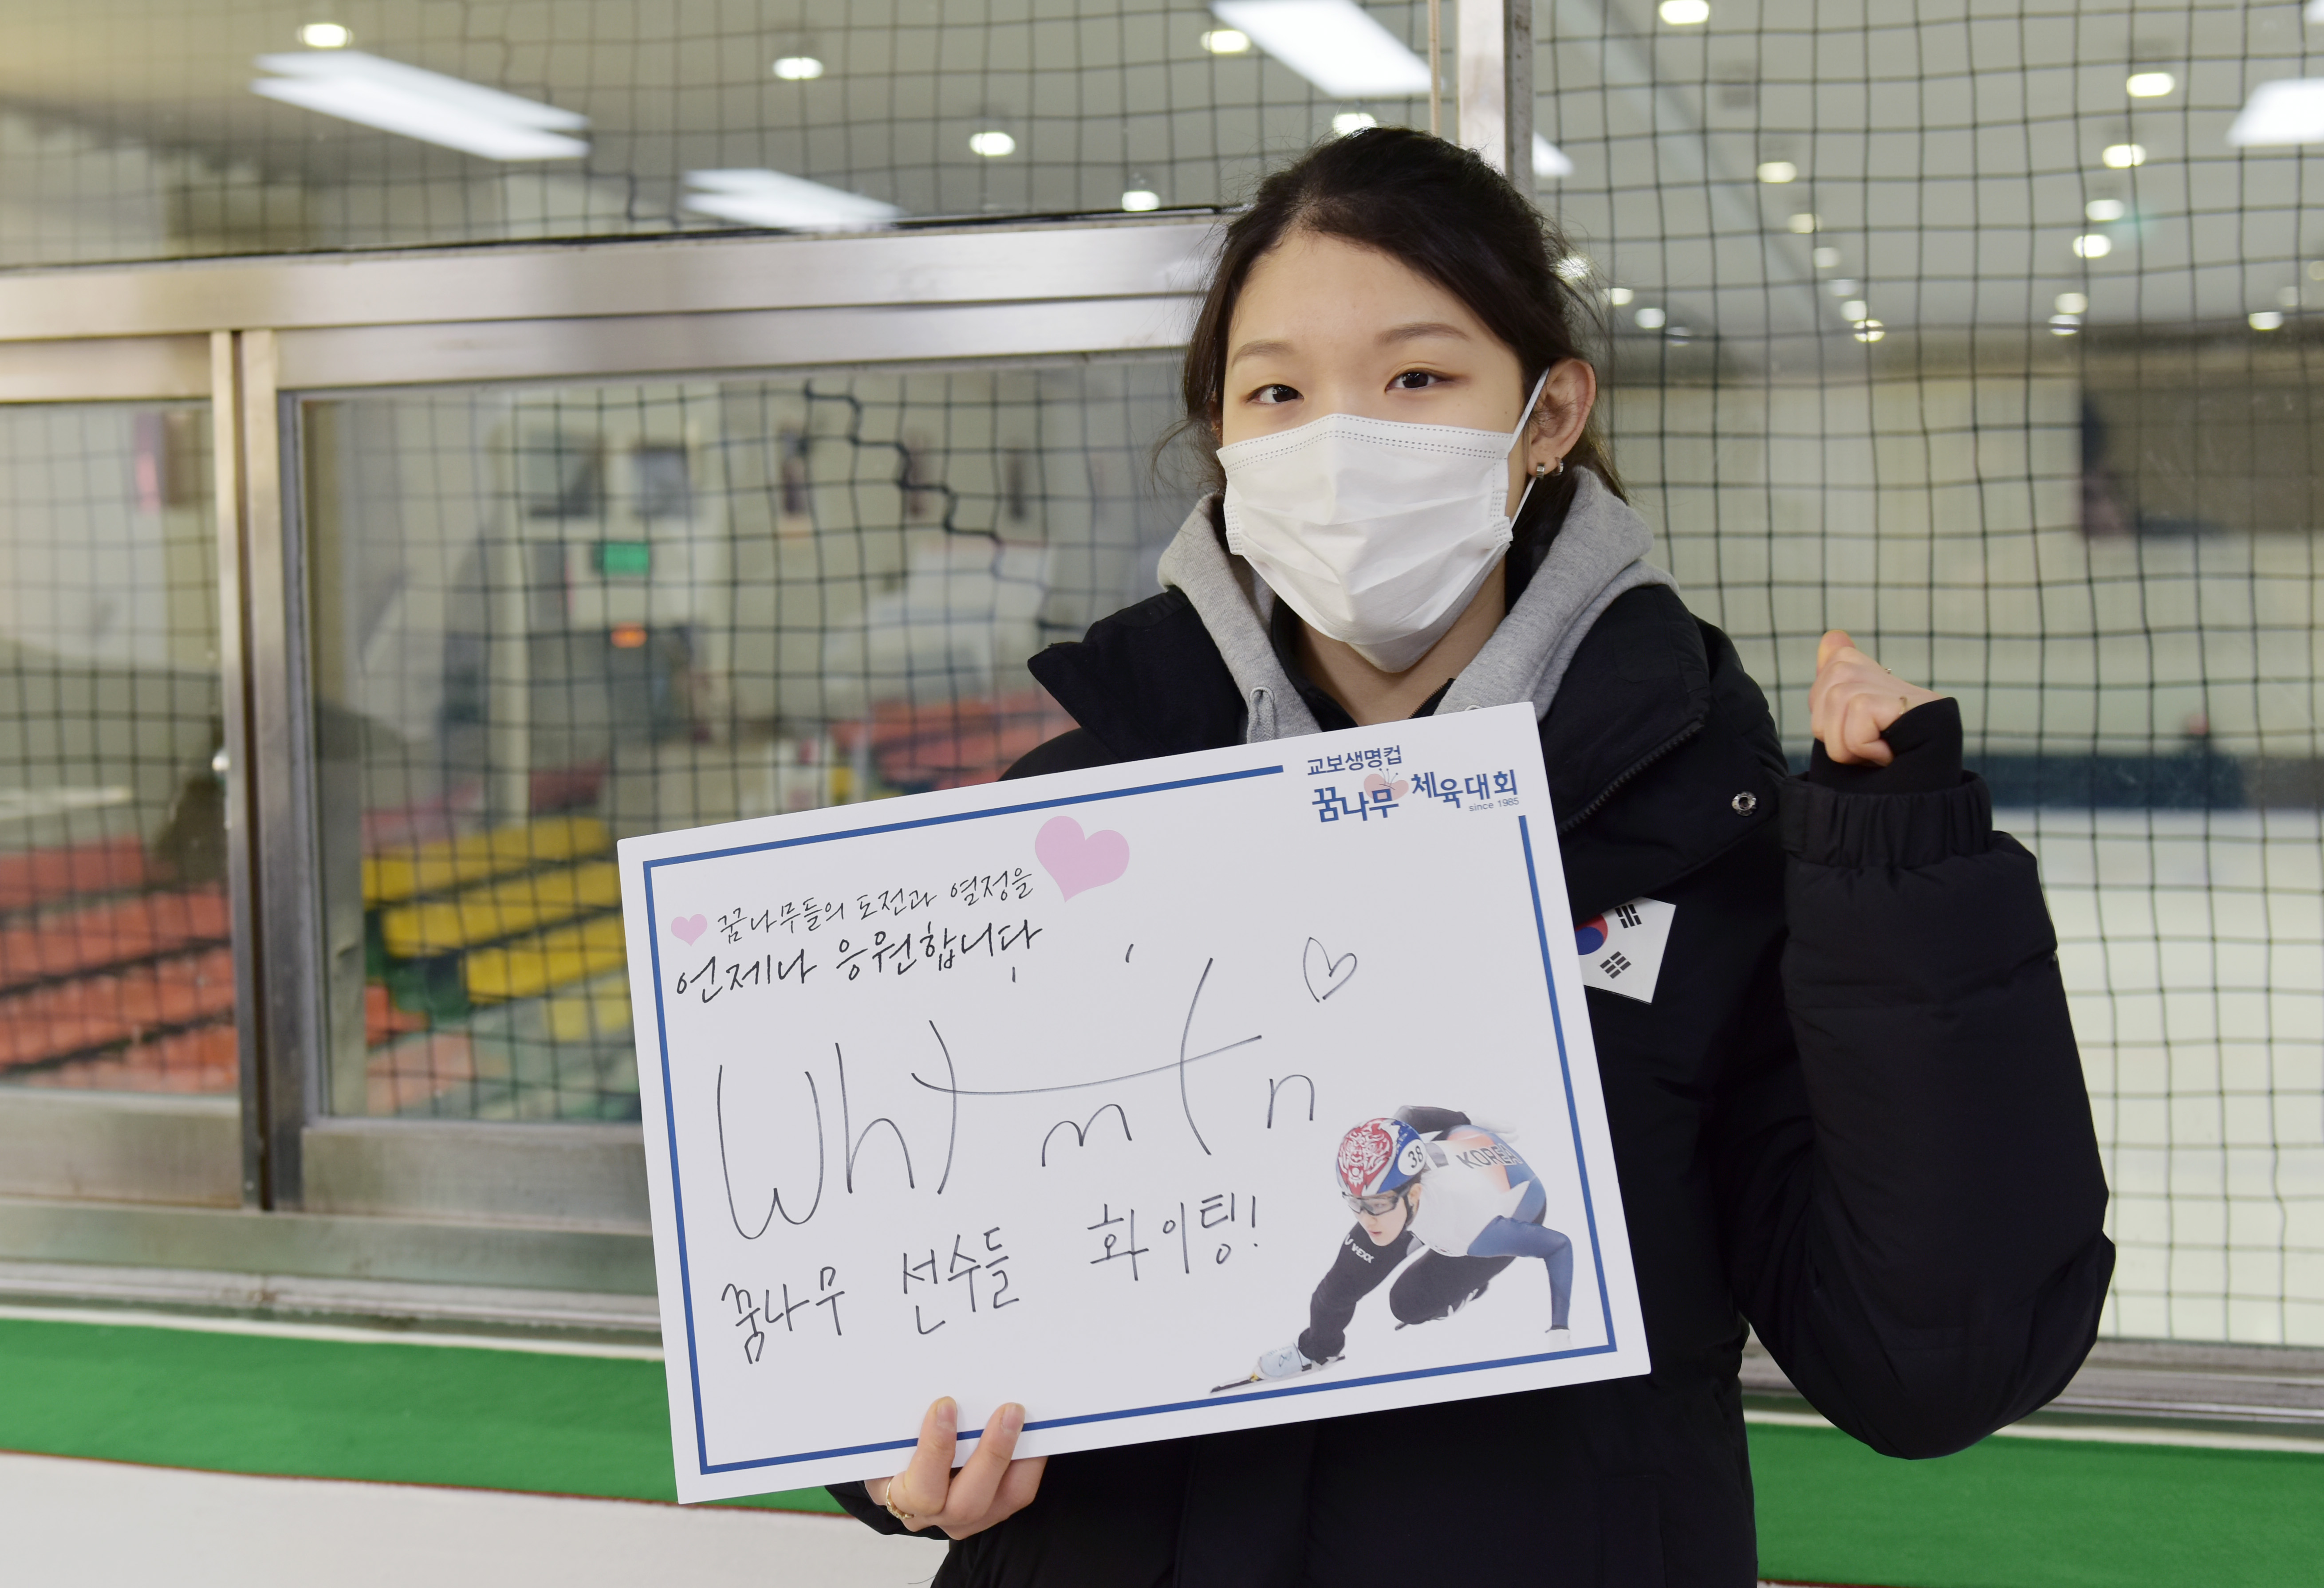 교보생명컵
꿈나무 체육대회
since 1985
꿈나무들의 도전과 열정을
언제나 응원합니다
꿈나무 선수들 화이팅!
38
KOREA
VEXX